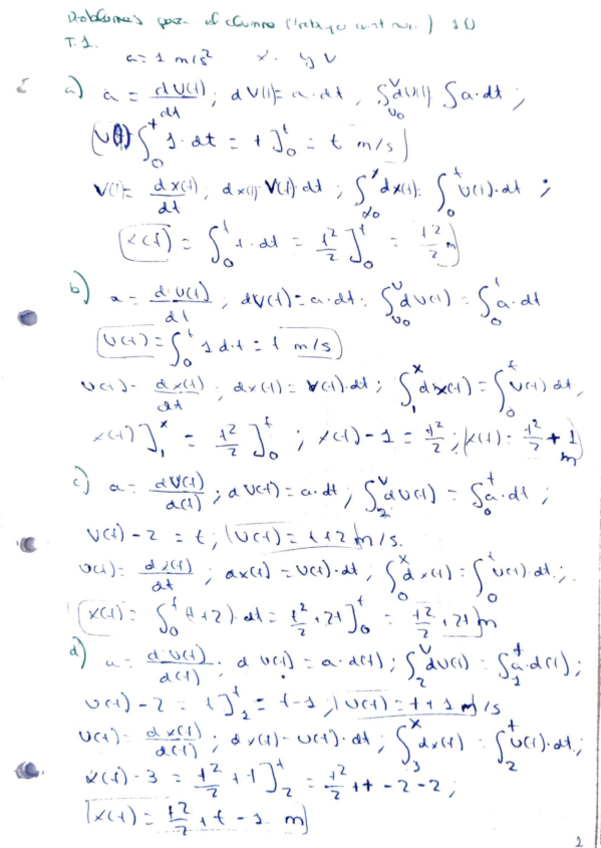 Problemas para el alumno (trabajo continuo.) 1D
T.1.
a = 1 m/s² x. y v
a) a = dv(t)/dt ; dv(t) = a·dt , ∫_{v0}^{v} dv(t) ∫a·dt ;
v(t) ∫_0^t 1·dt = t]_0^t = t m/s
v(t) = dx(t)/dt ; dx(t) = v(t)·dt ; ∫_{x0}^{x} dx(t) = ∫_0^t v(t)·dt ;
x(t) = ∫_0^t t·dt = t²/2]_0^t = t²/2 m
b) a = dv(t)/dt ; dv(t) = a·dt ; ∫_{v0}^{v} dv(t) = ∫_0^t a·dt
v(t) = ∫_0^t 1 dt = t m/s
v(t) = dx(t)/dt ; dx(t) = v(t)·dt ; ∫_1^x dx(t) = ∫_0^t v(t) dt,
x(t)]_1^x = t²/2]_0^t ; x(t) - 1 = t²/2 ; x(t) = t²/2 + 1 m
c) a = dv(t)/d(t) ; dv(t) = a·dt ; ∫_2^v dv(t) = ∫_0^t a·dt ;
v(t) - 2 = t ; v(t) = t+2 m/s.
v(t) = dx(t)/dt ; dx(t) = v(t)·dt , ∫_0^x dx(t) = ∫_0^t v(t)·dt ;
x(t) = ∫_0^t (t+2)·dt = t²/2 + 2t]_0^t = t²/2 + 2t m
d) a = dv(t)/d(t) ; dv(t) = a·d(t) ; ∫_2^v dv(t) = ∫_1^t a·d(t) ;
v(t) - 2 = t]_2^t = t-1 ; v(t) = t+1 m/s
v(t) = dx(t)/d(t) ; dx(t) = v(t)·dt ; ∫_3^x dx(t) = ∫_2^t v(t)·dt ;
x(t) - 3 = t²/2 + t]_2^t = t²/2 + t - 2 - 2 ;
x(t) = t²/2 + t - 1 m
1